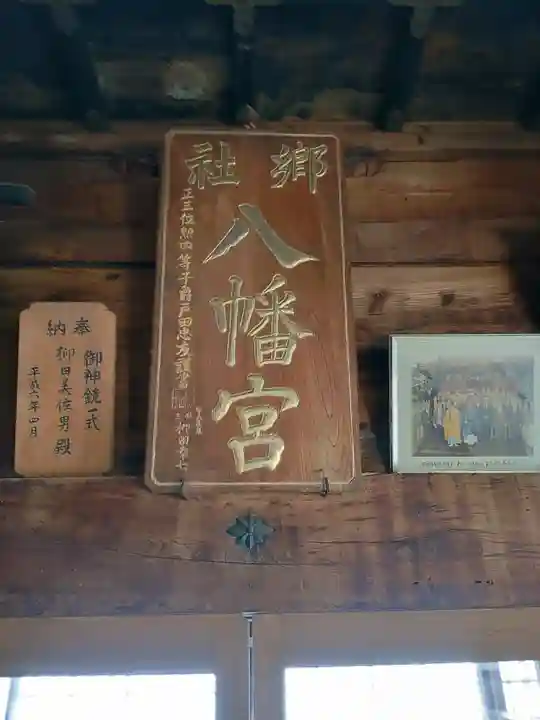 郷社
八幡宮
正三位勲四等子爵戸田忠友謹書
奉納
御神鏡一式
柳田美佐男殿
平成六年四月